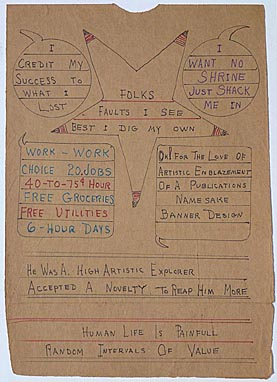 I
CREDIT MY
SUCCESS TO
WHAT I
LOST
I
WANT NO
SHRINE
JUST SHACK
ME IN
FOLKS
FAULTS I SEE
BEST I DIG MY OWN
WORK - WORK
CHOICE 20. JOBS
40-TO-75¢ HOUR
FREE GROCERIES
FREE UTILITIES
6-HOUR DAYS
OH! FOR THE LOVE OF
ARTISTIC ENBLAZEMENT
OF A PUBLICATIONS
NAME SAKE
BANNER DESIGN
HE WAS A. HIGH ARTISTIC EXPLORER
ACCEPTED A NOVELTY. TO REAP HIM MORE
HUMAN LIFE IS PAINFULL
RANDOM INTERVALS OF VALUE